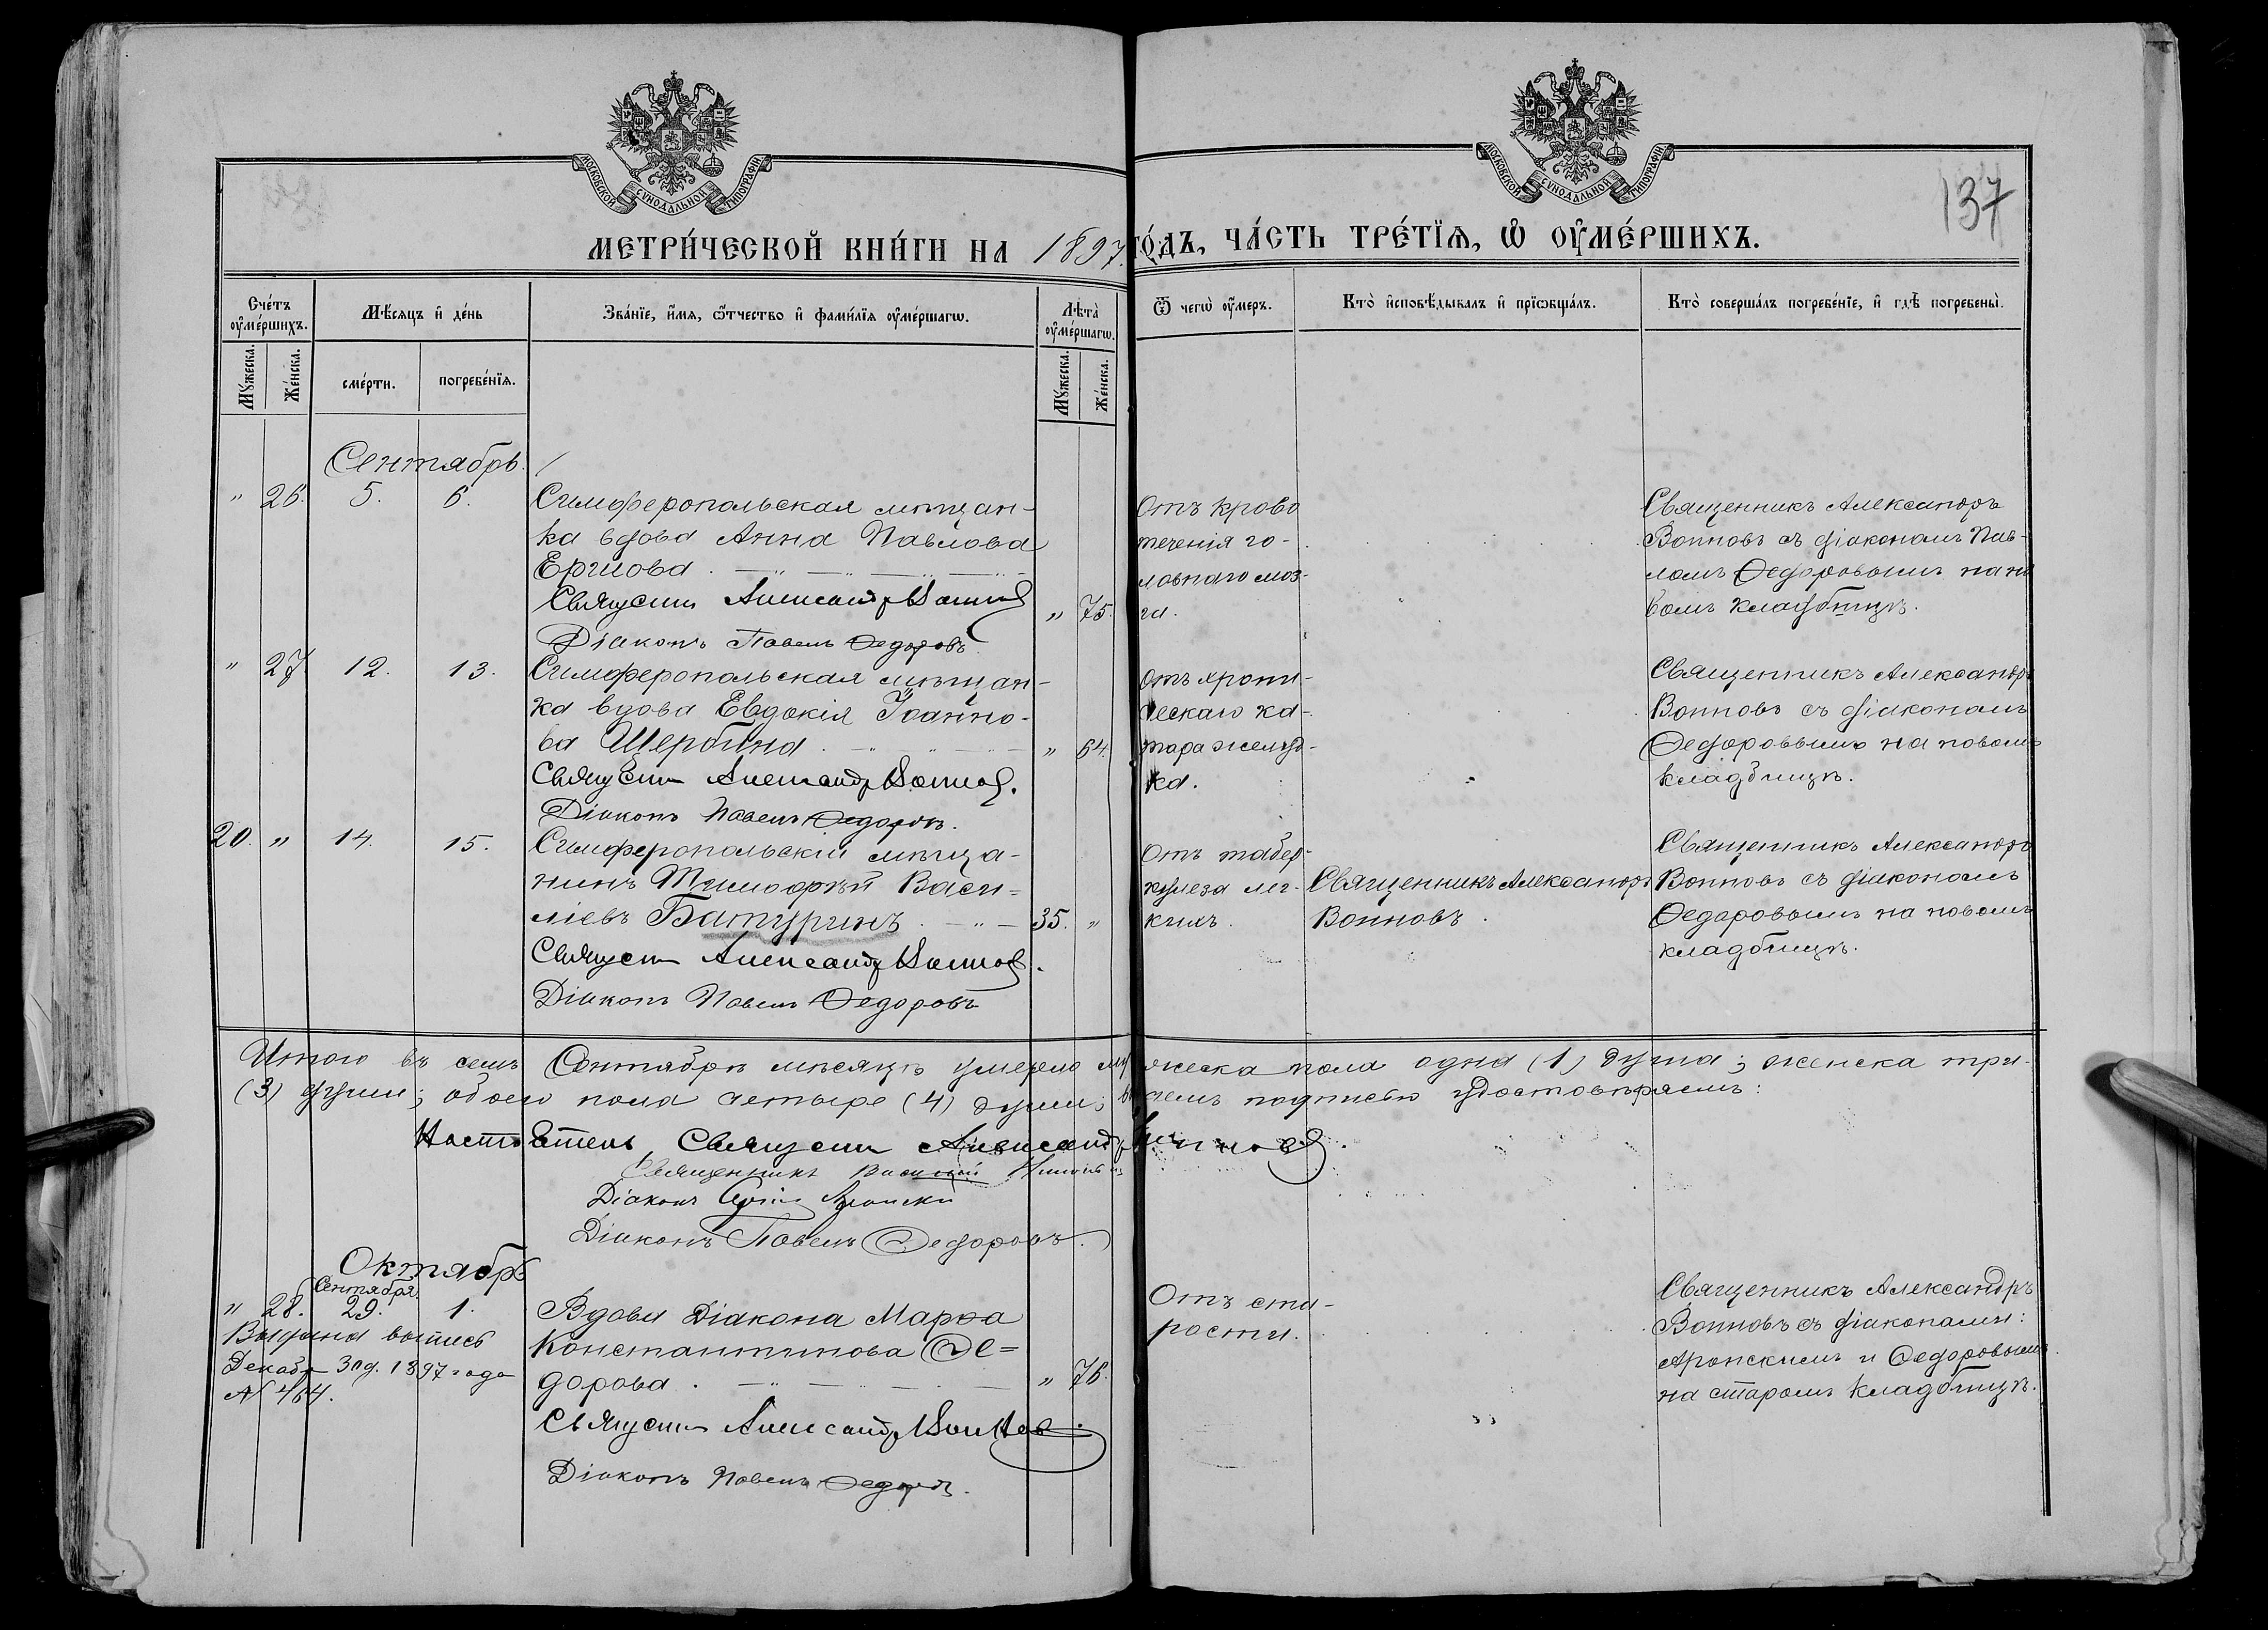 МОСКОВСКОЙ СУНОДАЛЬНОЙ ТИПОГРАФІИ
МОСКОВСКОЙ СУНОДАЛЬНОЙ ТИПОГРАФІИ
137
МЕТРИ́ЧЕСКОЙ КНИ́ГИ НА 1897 ГО́ДЪ, ЧА́СТЬ ТРЕ́ТЇѦ, Ѡ҆ ОУ҆МЕ́РШИХЪ.
Сче́тъ оу҆ме́ршихъ.
Мꙋ́жеска.
Же́нска.
Мѣ́сяцъ и҆ де́нь
сме́рти.
погребе́нїѧ.
Зва́нїе, и҆́мѧ, ѻ҆́тчество и҆ фами́лїѧ оу҆ме́ршагѡ.
Лѣ́та̀ оу҆ме́ршагѡ.
Мꙋ́жеска.
Же́нска.
Ѿ чегѡ̀ оу҆́меръ.
Кто̀ и҆сповѣ́дывалъ и҆ прїѡбща́лъ.
Кто̀ соверша́лъ погребе́нїе, и҆ гдѣ̀ погребены̀.
Сентябрь.
" 26. 5. 6.
Симферопольская мѣщан-
ка вдова Анна Павлова
Ершова.
Священ Александр Воинов
Діаконъ Павелъ Федоровъ
" 75.
Отъ крово
теченія го-
ловнаго моз-
га.
Священникъ Александръ
Воиновъ съ діакономъ Пав-
ломъ Федоровымъ на но
вомъ кладбищѣ.
" 27. 12. 13.
Симферопольская мѣщан-
ка вдова Евдокія Іоанно-
ва Щербина
Священ Александр Воинов.
Діаконъ Павелъ Федоровъ.
" 64.
отъ хрони-
ческаго ка-
тара желуд-
ка.
Священникъ Александръ
Воиновъ съ діакономъ
Федоровымъ на новомъ
кладбищѣ.
20. " 14. 15.
Симферопольскій мѣща-
нинъ Тимофей Васи-
ліевъ Батуринъ
Священ Александр Воинов.
Діаконъ Павелъ Федоровъ
35. "
Отъ тубер-
кулеза лег-
кихъ.
Священникъ Александръ
Воиновъ.
Священникъ Александръ
Воиновъ съ діакономъ
Федоровымъ на новомъ
кладбищѣ.
Итого въ семъ Сентябрѣ мѣсяцѣ умерло мужеска пола одна (1) душа; женска три
(3) души; обоего пола четыре (4) души; въ чемъ подписью удостовѣряемъ:
Настоятель, Священ Александр Воинов.
Священникъ Василій
Діаконъ Аронскій
Діаконъ Павелъ Федоровъ.
Октябрь
Сентября.
" 28. 29. 1.
Выдана выпись
Декабр 3 од. 1897 года
№ 464.
Вдова Діакона Марѳа
Константинова Фе-
дорова.
Священ Александр Воинов.
Діаконъ Павелъ Федоров.
" 76.
Отъ ста-
рости.
Священникъ Александръ
Воиновъ съ діаконами:
Аронскимъ и Федоровымъ
на старомъ кладбищѣ.